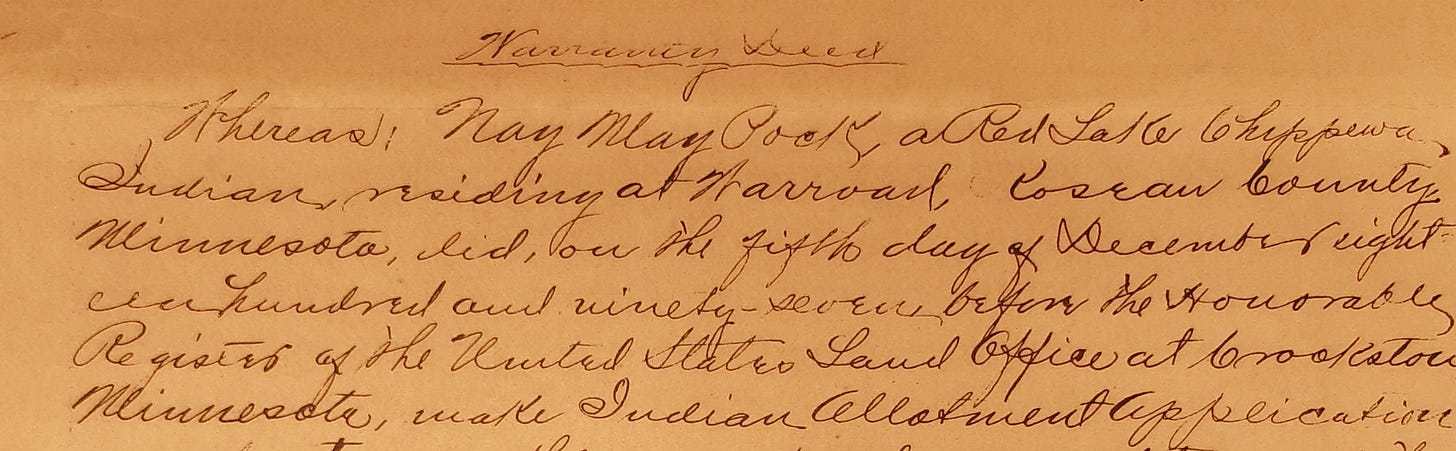 Warranty Deed
Whereas; Nay May Pock, a Red Lake Chippewa
Indian, residing at Warroad, Roseau County,
Minnesota, did, on the fifth day of December eight-
een hundred and ninety-seven, before the Honorable
Register of the United States Land Office at Crookston
Minnesota, make Indian Allotment Application